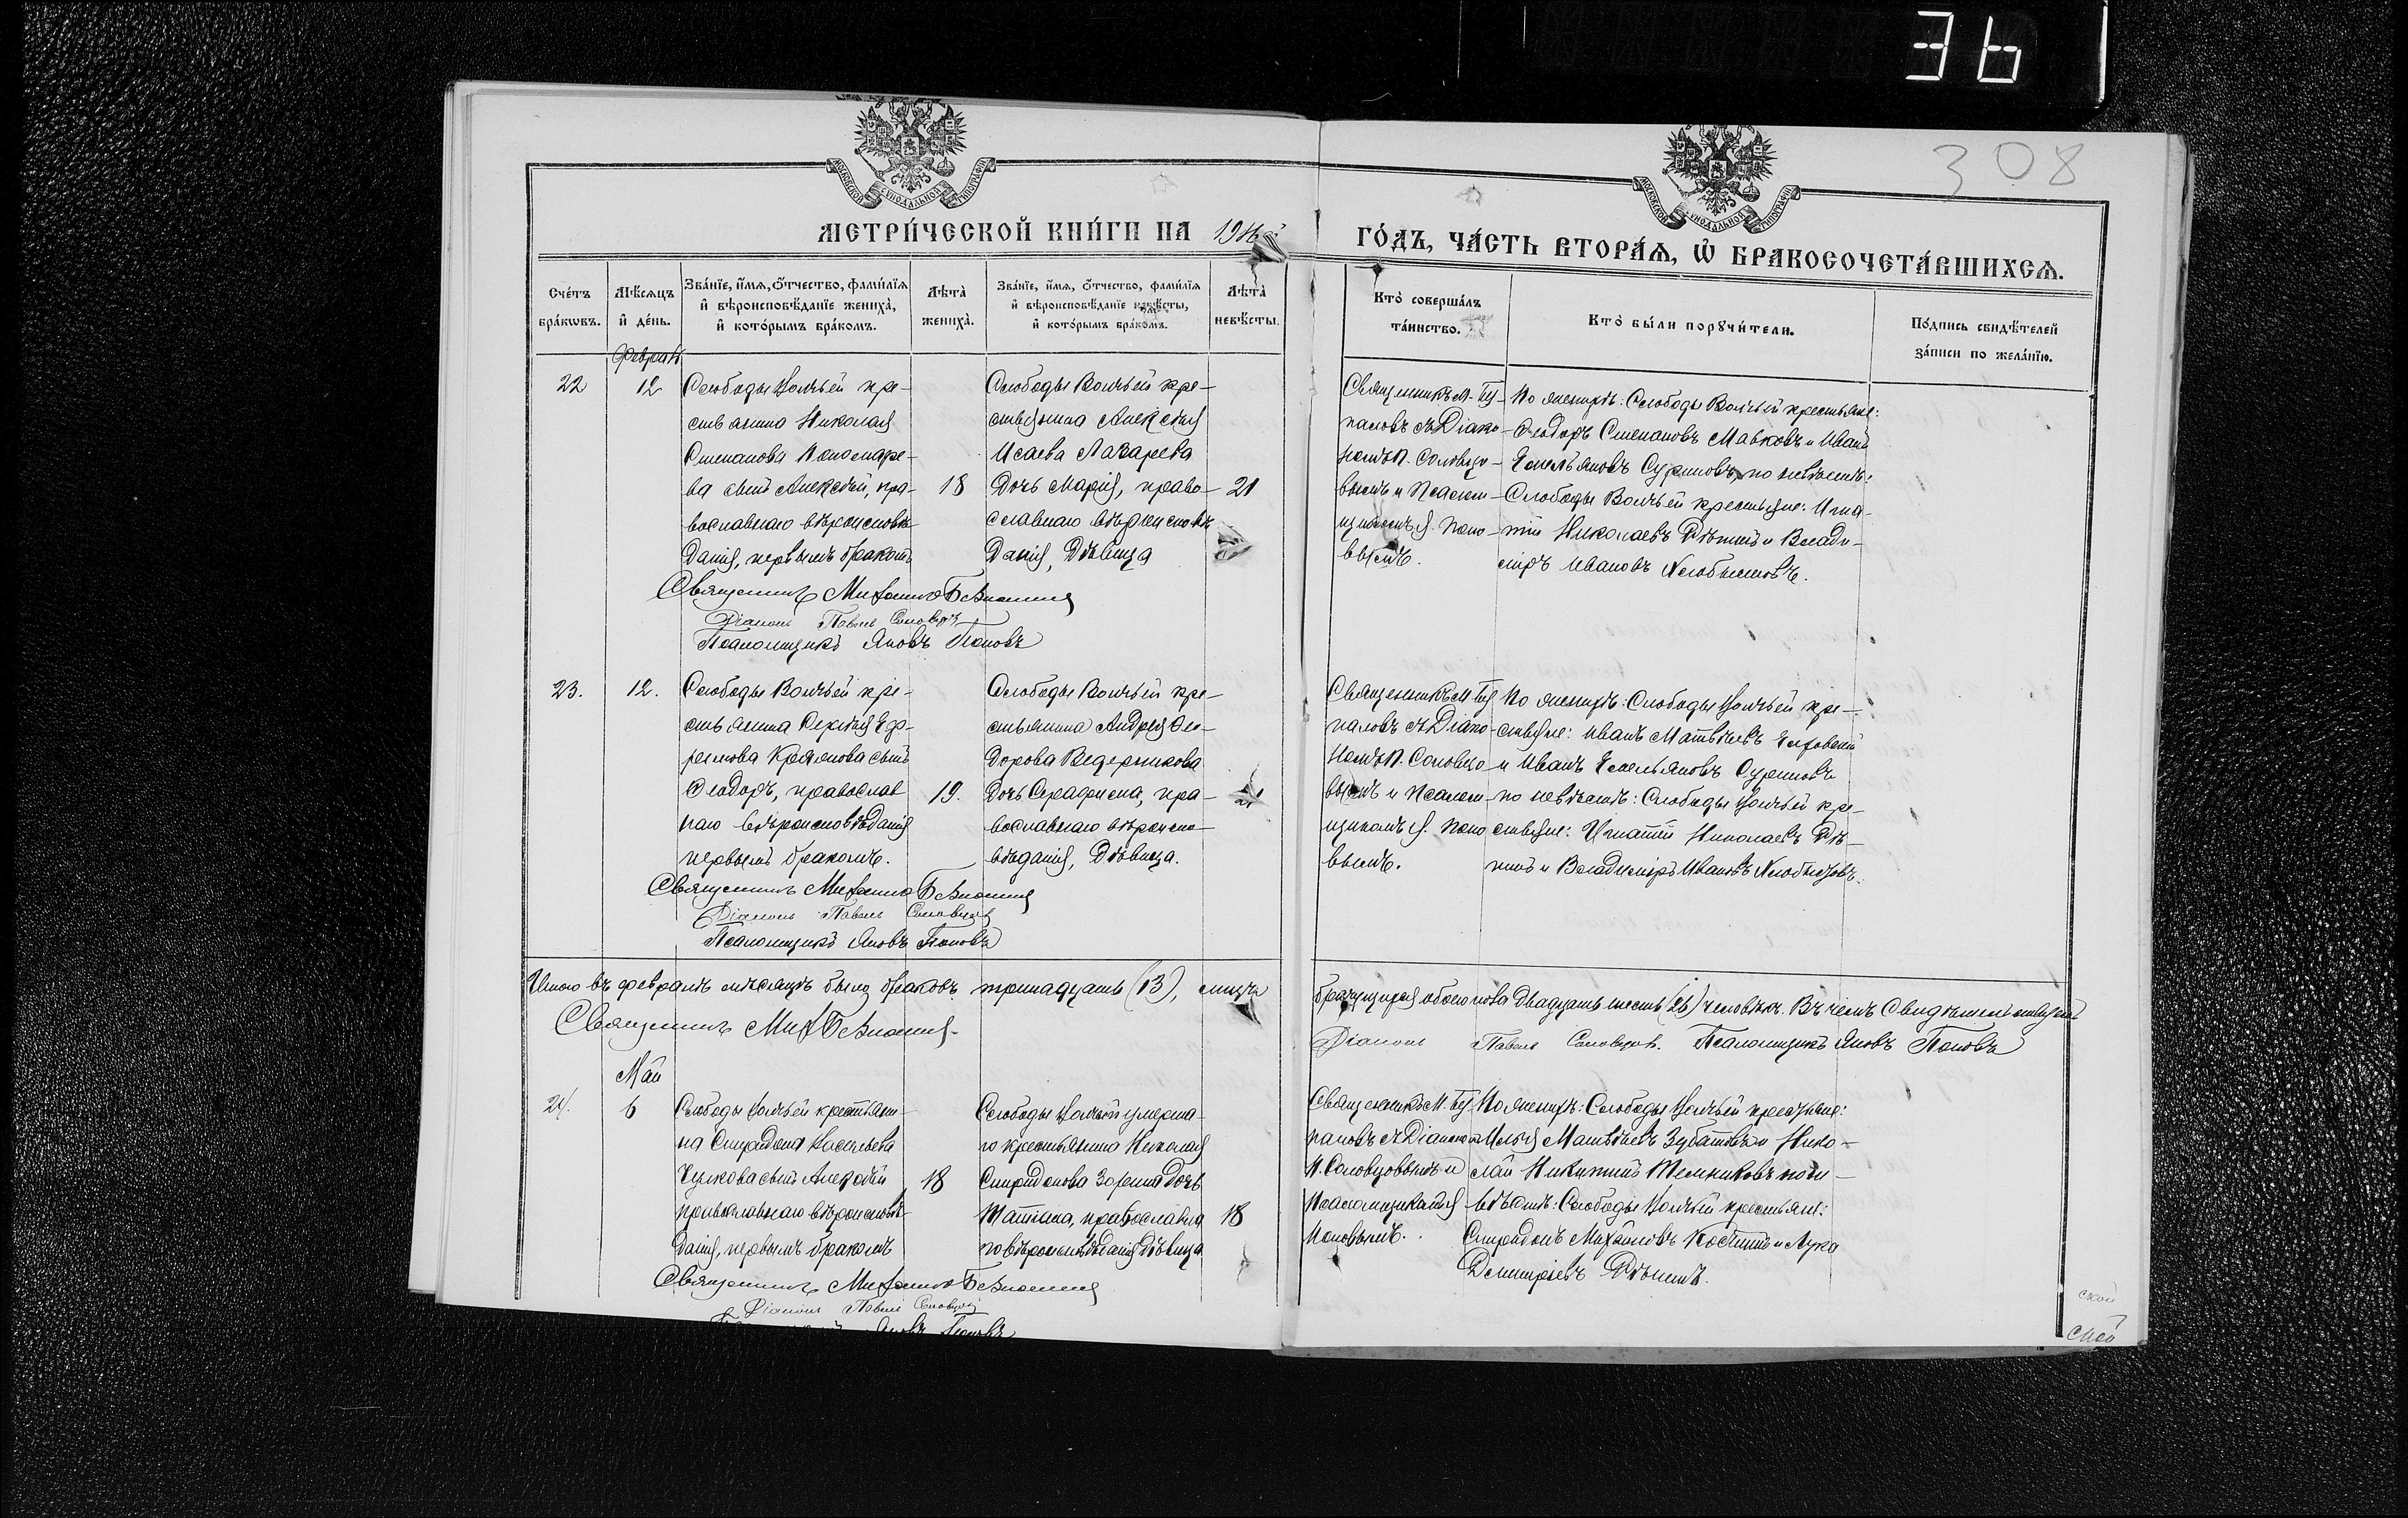 36
308
МОСКОВСКОЙ СѴНОДАЛЬНОЙ ТИПОГРАФІИ
МОСКОВСКОЙ СѴНОДАЛЬНОЙ ТИПОГРАФІИ
МЕТРИ́ЧЕСКОЙ КНИ́ГИ НА
ГО́ДЪ, ЧА́СТЬ ВТОРА́Ѧ, Ѡ҆ БРАКОСОЧЕТА́ВШИХСѦ.
Сче́тъ бра́кѡвъ.
Мѣ́сѧцъ и҆ де́нь.
Зва́нїе, и҆́мѧ, ѻ҆́тчество, фамилїѧ и҆ вѣроисповѣ́данїе жениха̀, и҆ кото́рымъ бра́комъ.
Лѣта̀ жениха̀.
Зва́нїе, и҆́мѧ, ѻ҆́тчество, фамилїѧ и҆ вѣроисповѣ́данїе невѣ́сты, и҆ кото́рымъ бра́комъ.
Лѣта̀ невѣ́сты.
Кто̀ соверша́лъ та́инство.
Кто̀ бы́ли порꙋчи́тели.
По́дпись свидѣ́телей за́писи по жела́нїю.
Февраль
22
12
Слободы Волчьей кре-
стьянина Николая
Степанова Пономаре-
ва сынъ Алексѣй, пра-
вославнаго вѣроисповѣ-
данія, первымъ бракомъ
18
Слободы Волчьей кре-
стьянина Алексѣя
Исаева Лазарева
дочь Марія, право-
славнаго вѣроисповѣ
данія, дѣвица
21
Священникъ М.
съ Діако-
номъ П. Соловцо-
вымъ и Псалом-
щикомъ Я. Попо-
вымъ.
По женихѣ: Слободы Волчьей крестьяне:
Ѳеодоръ Степановъ Мавковъ и Иванъ
Емельяновъ Суриновъ, по невѣстѣ:
Слободы Волчьей крестьяне: Игна-
тій Николаевъ и Влади-
міръ Ивановъ
Священникъ Михаилъ
Діаконъ Павелъ Соловцовъ
Псаломщикъ Яковъ Поповъ
23.
12.
Слободы Волчьей кре-
стьянина Сергѣя Еф-
ремова сынъ
Ѳеодоръ, православ
наго вѣроисповѣданія
первымъ бракомъ.
19.
Слободы Волчьей кре-
стьянина Андрея Ѳео-
дорова Ведерникова
дочь Серафима, пра-
вославнаго вѣроиспо-
вѣданія, дѣвица.
21
Священникъ М.
съ Діако-
номъ П. Соловцо
вымъ и Псалом-
щикомъ Я. Попо
вымъ.
По женихѣ: Слободы Волчьей кре-
стьяне: Иванъ Матвѣевъ
и Иванъ Емельяновъ Суриновъ
по невѣстѣ: Слободы Волчьей кре-
стьяне: Игнатій Николаевъ
и Владиміръ Ивановъ
Священникъ Михаилъ
Діаконъ Павелъ Соловцовъ
Псаломщикъ Яковъ Поповъ
Итого въ февралѣ мѣсяцѣ было браковъ тринадцать (13), лицъ
брачущихся обоего пола двадцать шесть (26) человѣкъ. Въ чемъ Свидѣтельствуемъ
Священникъ Мих.
Діаконъ Павелъ Соловцовъ. Псаломщикъ Яковъ Поповъ
Май
24.
6
Слободы Волчьей крестьяни-
на Спиридона Васильева
сынъ Алексѣй
православнаго вѣроисповѣ-
данія, первымъ бракомъ
18
Слободы Волчьей умерша-
го крестьянина Николая
Спиридонова Зорина дочь
Татіана, православна
го вѣроисповѣданія дѣвица
18
Священникъ М.
съ Діакономъ
П. Соловцовымъ и
Псаломщикомъ Я
Поповымъ.
По женихѣ: Слободы Волчьей крестьяне:
Илья Матвѣевъ Зубатовъ и Нико-
лай Никитинъ Мельниковъ по не-
вѣстѣ: Слободы Волчьей крестьяне:
Спиридонъ Михайловъ Костинъ и Лука
Димитріевъ
Священникъ Михаилъ
Діаконъ Павелъ Соловцовъ
Яковъ Поповъ
ской